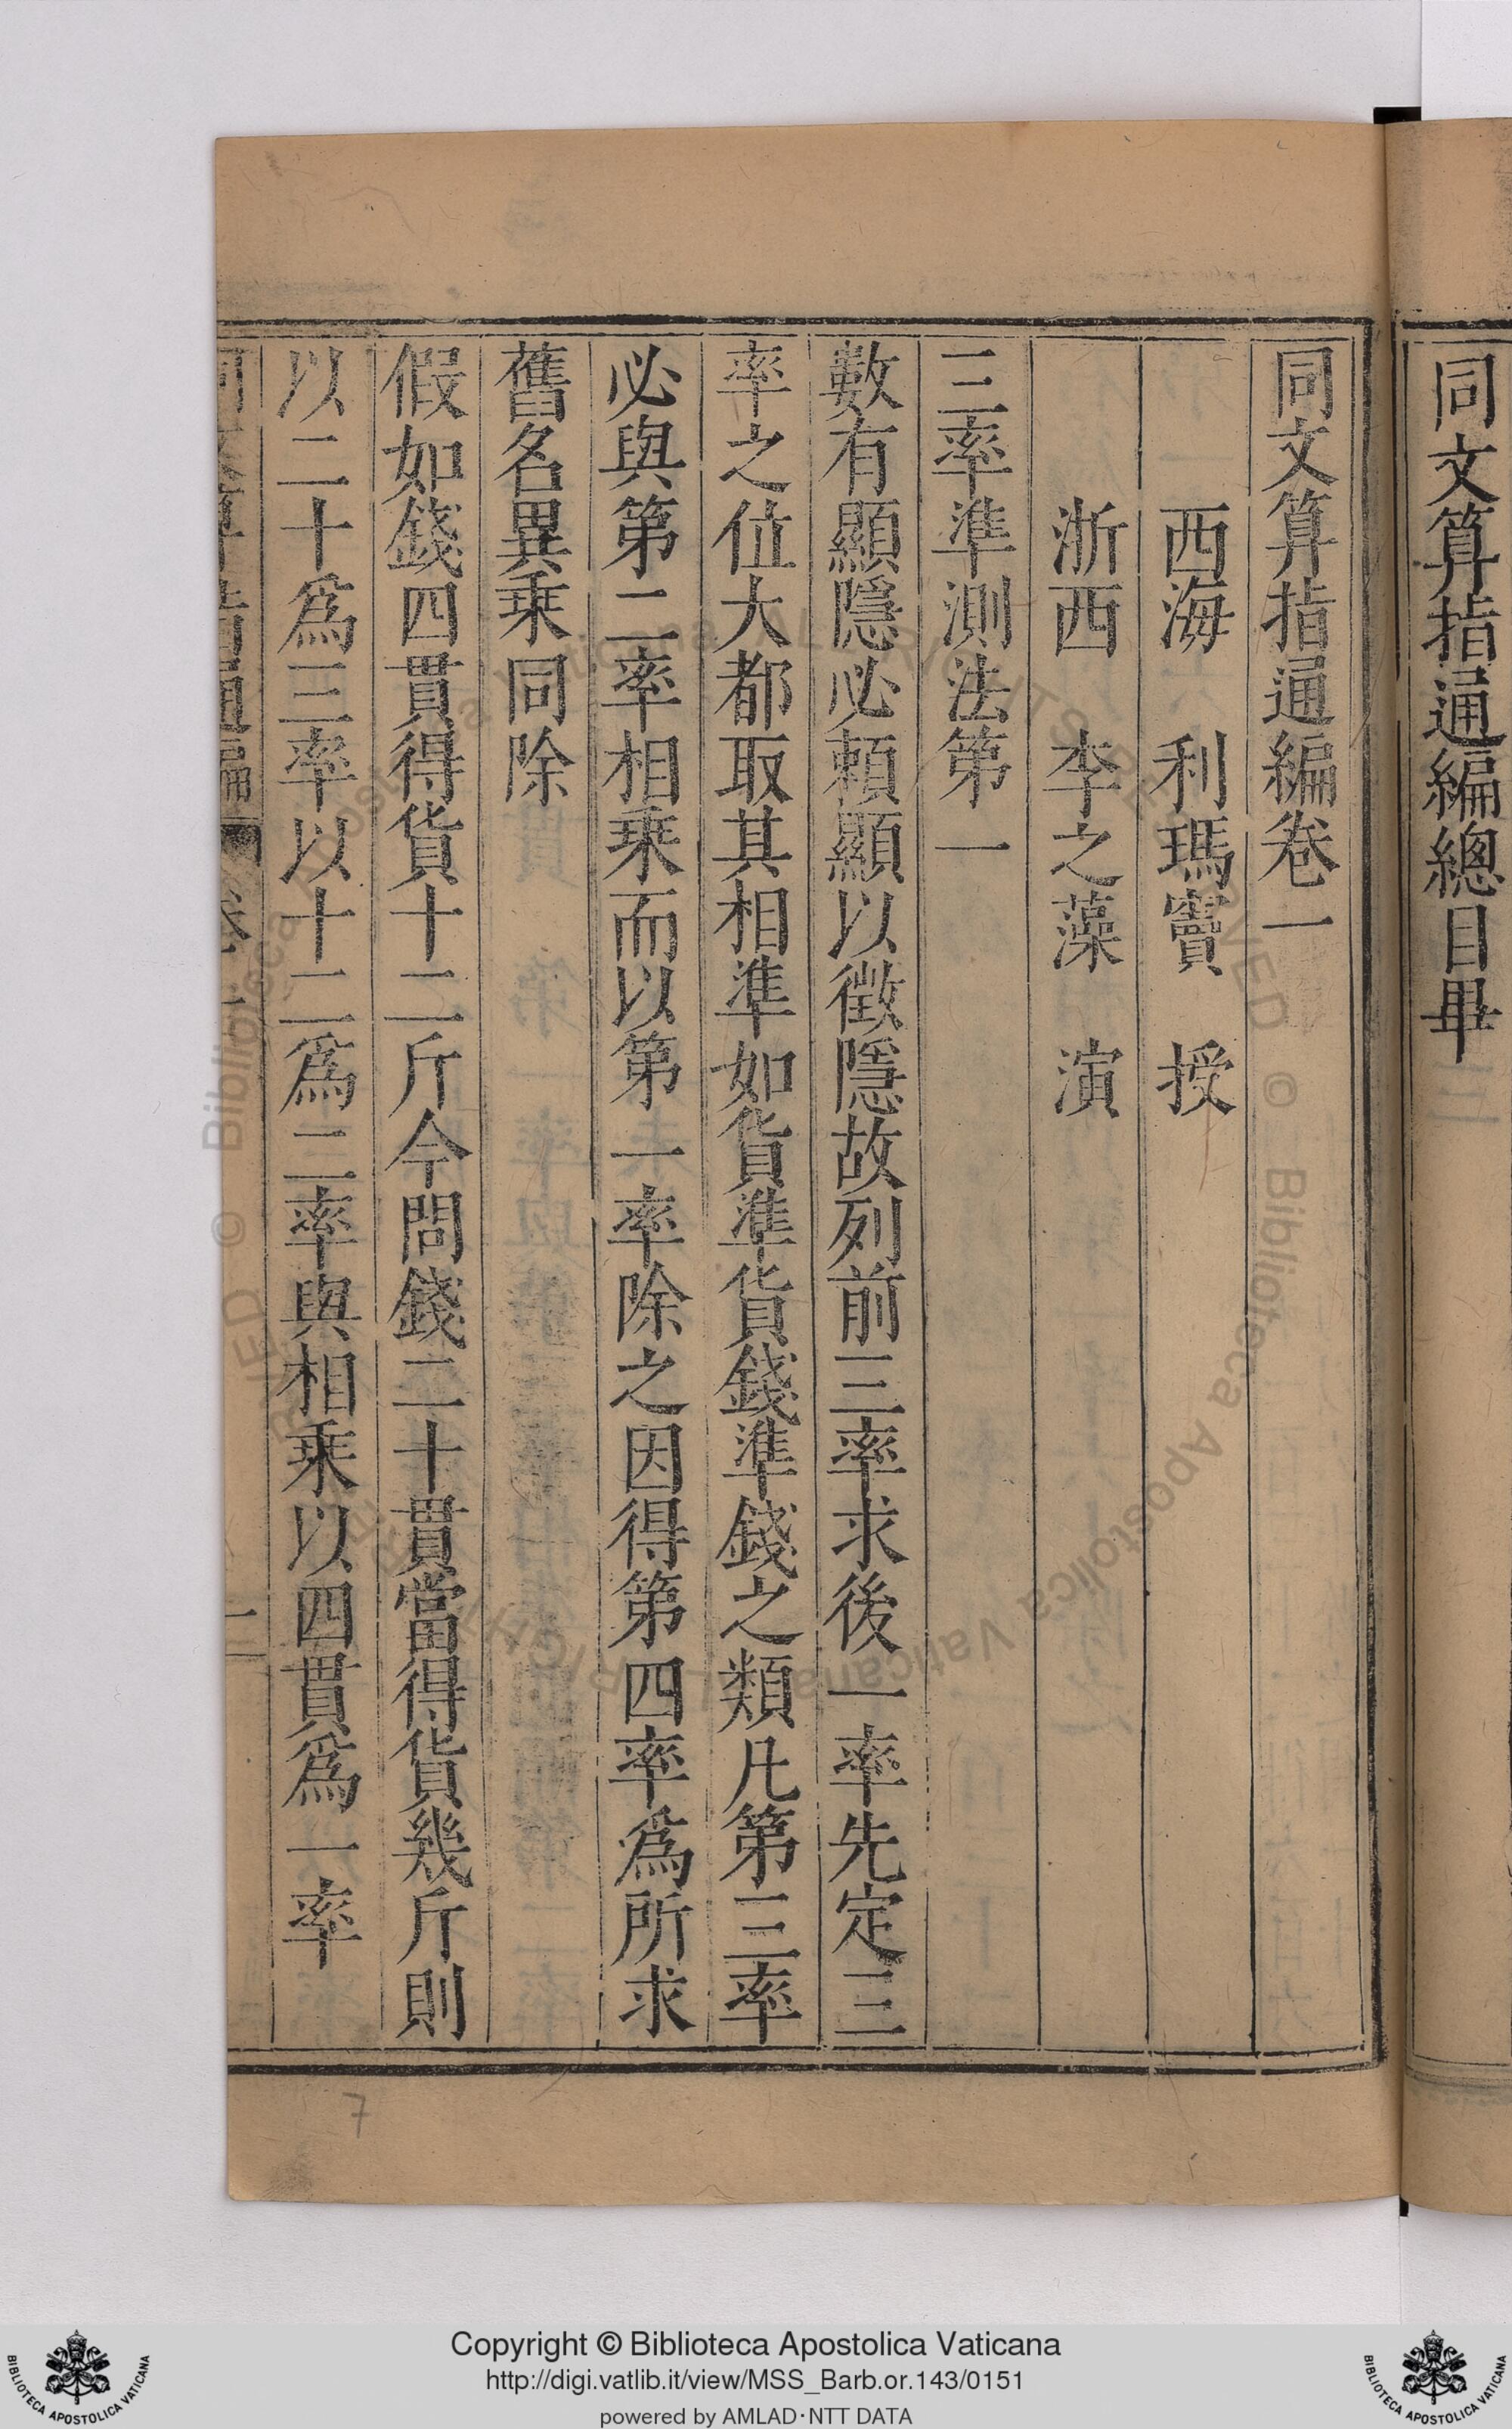 同文算指通編總目畢
同文算指通編卷一
西海 利瑪竇 授
浙西 李之藻 演
三率準測法第一
數有顯隱必賴顯以徵隱故列前三率求後一率先定三
率之位大都取其相準如貨準貨錢準錢之類凡第三率
必與第二率相乘而以第一率除之因得第四率為所求
舊名異乘同除
假如錢四貫得貨十二斤今問錢二十貫當得貨幾斤則
以二十為三率以十二為二率與相乘以四貫為一率
同文算指通編 卷一 一
7
Copyright © Biblioteca Apostolica Vaticana
http://digi.vatlib.it/view/MSS_Barb.or.143/0151
powered by AMLAD·NTT DATA
BIBLIOTECA APOSTOLICA VATICANA
BIBLIOTECA APOSTOLICA VATICANA